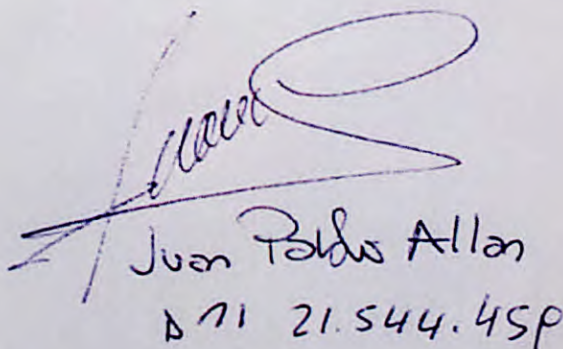 Juan Pablo Allan
DNI 21.544.458